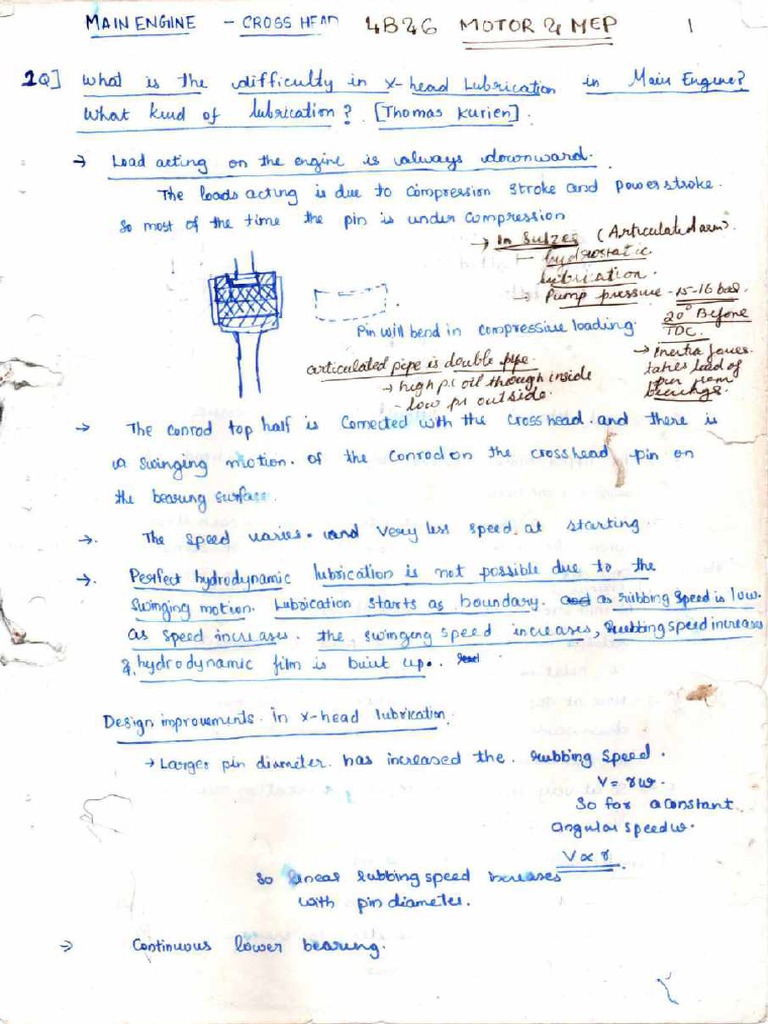 MAIN ENGINE - CROSS HEAD 4B26 MOTOR & MEP 1
1Q] What is the difficulty in x-head Lubrication in Main Engine?
What kind of lubrication? [Thomas Kurien].
→ Load acting on the engine is always downward.
The loads acting is due to compression stroke and power stroke.
So most of the time the pin is under compression
→ In Sulzer (Articulated arm).
hydrostatic
lubrication.
→ Pump pressure - 15-16 bar.
20° Before
TDC.
Pin will bend in compressive loading.
→ Inertia forces
takes load of
pin from
bearings.
articulated pipe is double pipe.
→ high pr oil through inside
- low pr outside.
→ The conrod top half is connected with the crosshead. and there is
a swinging motion. of the conrod on the crosshead pin on
the bearing surface.
→. The speed varies. and very less speed. at starting.
→. Perfect hydrodynamic lubrication is not possible due to the
swinging motion. Lubrication starts as boundary. as rubbing speed is low.
as speed increases. the swinging speed increases, rubbing speed increases
& hydrodynamic film is built up.
Design improvements. in x-head lubrication.
→ Larger pin diameter. has increased the. rubbing speed.
V = rω.
So for a constant
angular speed ω.
V ∝ r.
So linear rubbing speed increases
with pin diameter.
→ Continuous lower bearing.